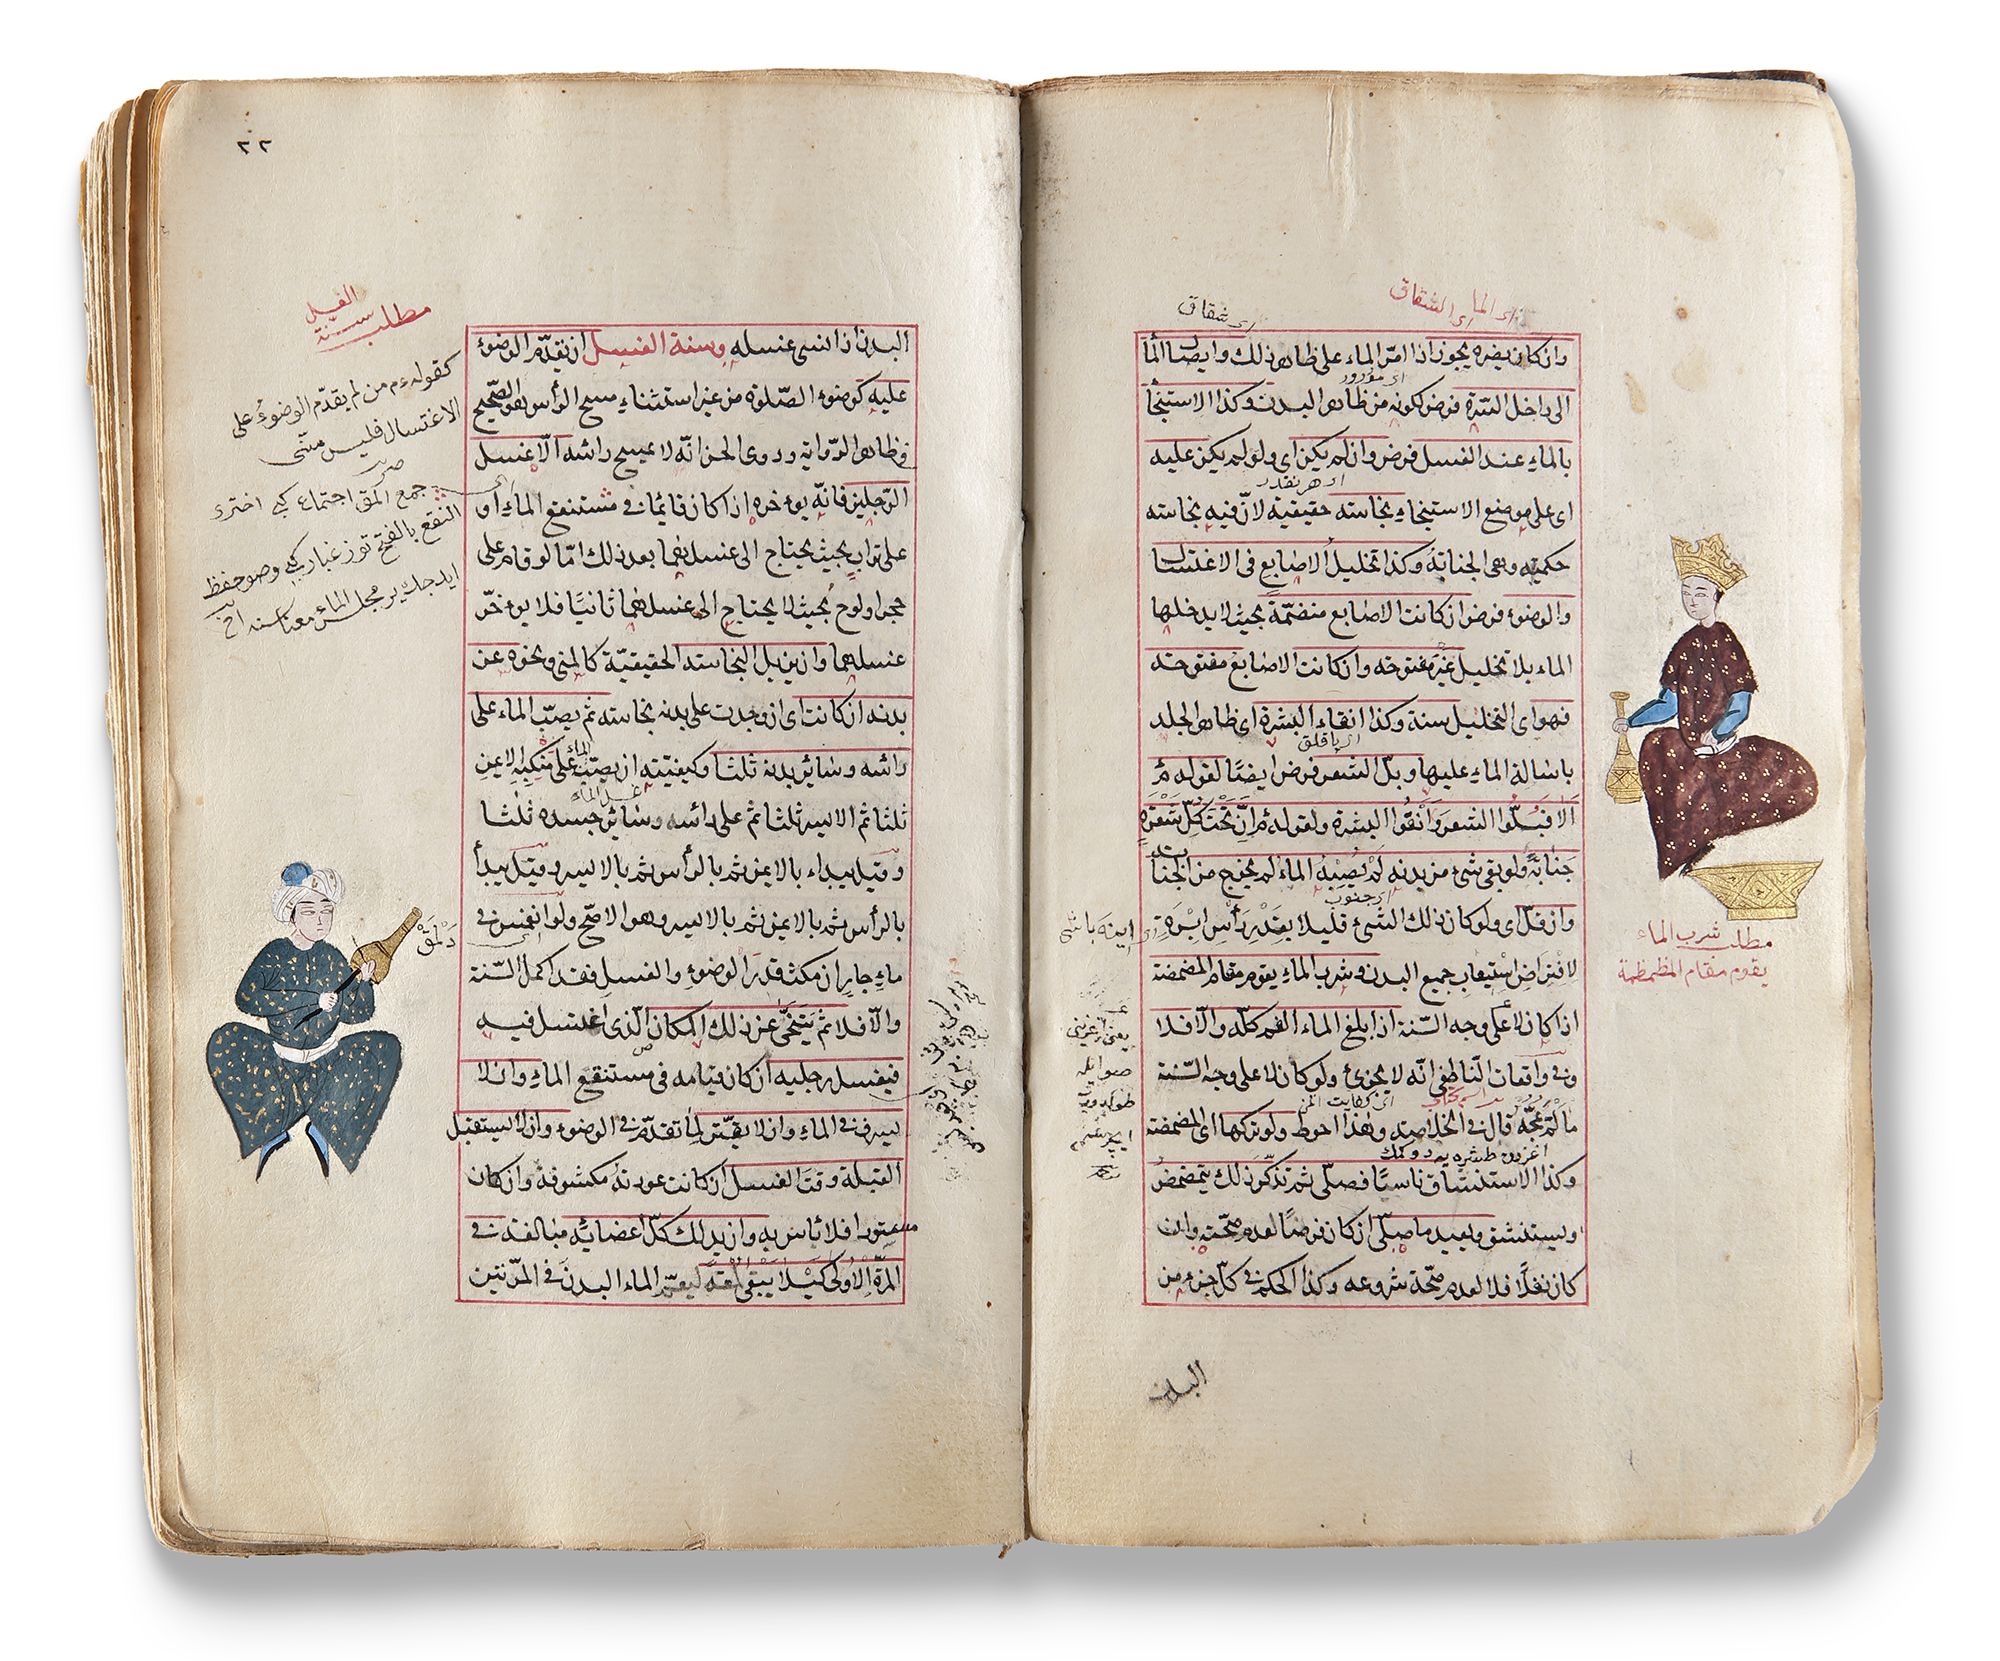 وان كان يضره يجوز اذا امرّ الماء على ظاهر ذلك وايصال الما
الى داخل السّرة فرض لكونه من ظاهر البدن وكذا الاستنجا
بالماء عند الغسل فرض وان لم يكن اى ولو لم يكن عليه
اى على موضع الاستنجاء نجاسة حقيقية لانّ فيه نجاسة
حكمية وهى الجنابة وكذا تخليل الاصابع فى الاغتسال
والوضوء فرض ان كانت الاصابع منضمّة بحيث لا يدخلها
الماء بلا تخليل غير مفتوحة وان كانت الاصابع مفتوحة
فهو اى التخليل سنة وكذا انقاء البشرة اى ظاهر الجلد
باسالة الماء عليها وبلّ الشعر فرض ايضًا لقوله م
الا فبلّوا الشعر وَانْقُوا البشرة ولقوله م اِنّ تَحْتَ كلِّ شَعْرَةٍ
جَنَابَةً ولو بقى شىء من بدنه لَمْ يُصِبْهُ الماء لم يخرج من الجنابة
وان قلّ اى ولو كان ذلك الشئ قليلا بقدر رَأْسِ اِبْرَة
لافتراض استيعاب جميع البدن وشرب الماء يقوم مقام المضمضة
اذا كان لا على وجه السّنة اذا بلغ الماء الفم كلّه والّا فلا
وفى واقعات النّاطفى انّه لا يجزئ ولو كان لا على وجه السّنة
ما لم يمجّه قال فى الخلاصة وهذا احوط ولو تركها اى المضمضة
وكذا الاستنشاق ناسيًا فصلّى ثم تذكّر ذلك يتمضمض
ويستنشق ويعيد ما صلّى ان كان فرضًا لعدم صحّته وان
كان نفلًا فلا لعدم صحّة شروعه وكذا الحكم فى كلّ جزء من
اى شقاق
مطلب شرب الماء
يقوم مقام المظمظمة
البدن
٢٢
البدن اذا نسى غسله وسنة الغسل ان يقدّم الوضوء
عليه كوضوء الصّلوة من غير استثناء مسح الرأس هو الصّحيح
فى ظاهر الرّواية وروى الحسن انّه لا يمسح راسه الّا غسل
الرّجلين فانّه يوخره اذا كان قايمًا فى مستنقع الماء او
على تراب بحيث يحتاج الى غسلهما بعد ذلك امّا لو قام على
حجر او لوح بحيث لا يحتاج الى غسلهما ثانيًا فلا يوخّر
غسلهما وان يزيل النجاسة الحقيقيّة كالمنى ونحوه عن
بدنه ان كانت اى ان وجدت على بدنه نجاسة ثم يصبّ الماء على
راسه وسائر بدنه ثلثا وكيفيّته ان يصبّ الماء على منكبه الايمن
ثلثا ثم الايسر ثلثا ثم على رائسه وسائر جسده ثلثا
وقيل يبداء بالايمن ثم بالرأس ثم بالايسر وقيل يبدأ
بالرأس ثم بالايمن ثم بالايسر وهو الاصّح ولو انغمس فى
ماء جار ان مكث قدر الوضوء والغسل فقد اكمل السّنة
والّا فلا ثم يتنحّى عن ذلك المكان الّذى اغتسل فيه
فيغسل رجليه ان كان قيامه فى مستنقع الماء وان لا
يسرف فى الماء وان لا يقتّر لما تقدّم فى الوضوء وان لا يستقبل
القبلة وقت الغسل ان كانت عورته مكشوفة وان كان
مستورا فلا باس به وان يدلك كلّ اعضائه مبالغة فى
المرّة الاولى كَيْلا يَبْقَى لمعةٌ ليعمّ الماء البدن فى المرّتين
مطلب سنة
الغسل
كقوله عم من لم يقدّم الوضوء على
الاغتسال فليس منّى
جمع المق اجتماع كبى اخترى
النقع بالفتح توز غبار كبى وصو حفظ